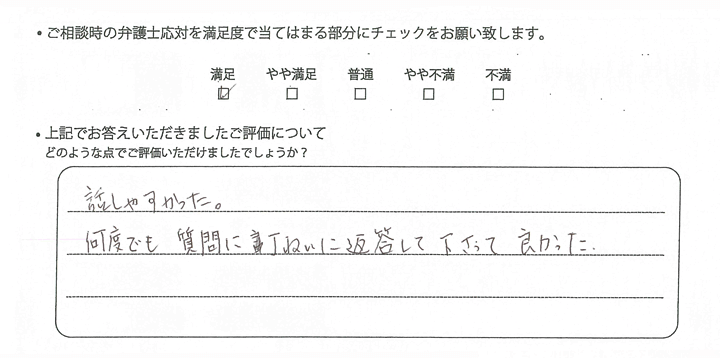 ・ご相談時の弁護士応対を満足度で当てはまる部分にチェックをお願い致します。
満足 やや満足 普通 やや不満 不満
☑ □ □ □ □
・上記でお答えいただきましたご評価について
どのような点でご評価いただけましたでしょうか？
話しやすかった。
何度でも 質問に 丁ねいに返答して 下さって 良かった.